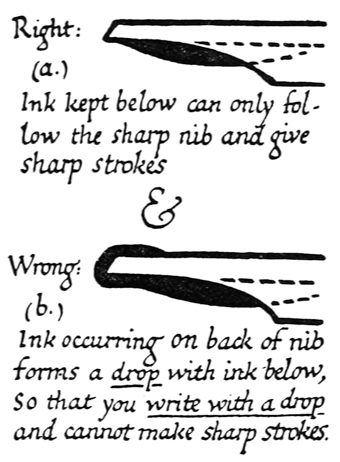 Right:
(a.)
Ink kept below can only fol-
low the sharp nib and give
sharp strokes
&
Wrong:
(b.)
Ink occurring on back of nib
forms a drop with ink below,
So that you write with a drop
and cannot make sharp strokes.